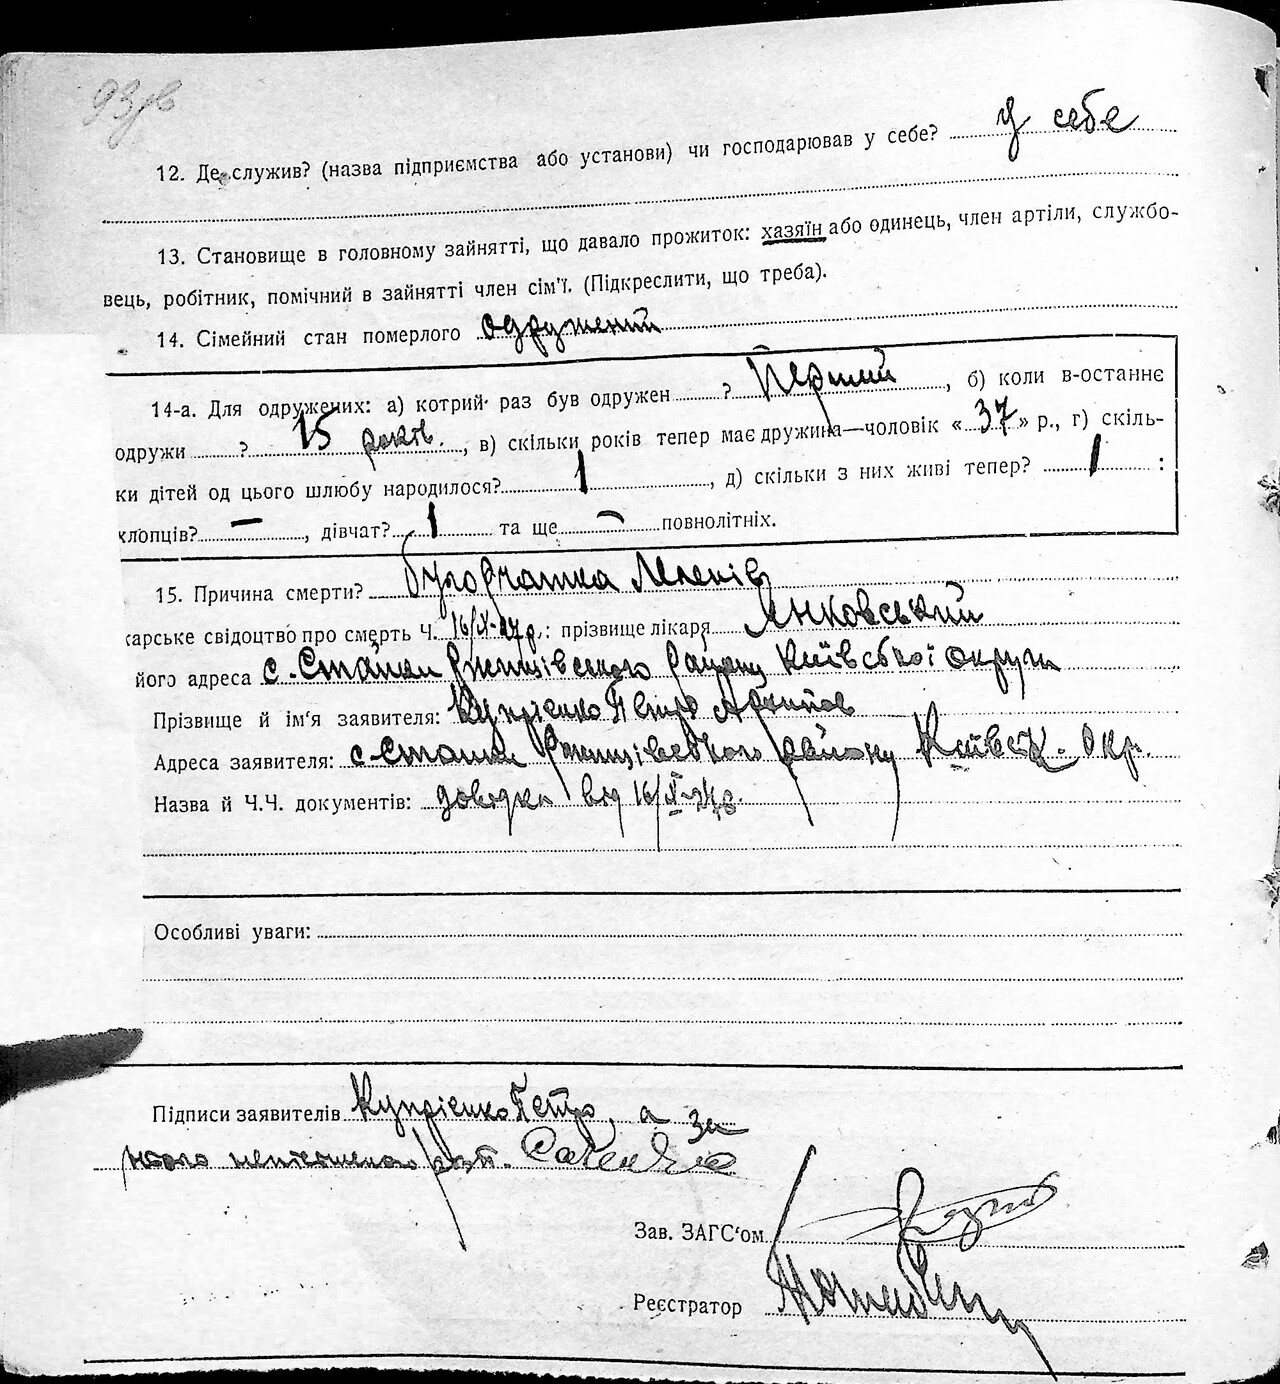 93зв
12. Де служив? (назва підприємства або установи) чи господарював у себе? у себе
13. Становище в головному зайнятті, що давало прожиток: хазяїн або одинець, член артіли, службо-
вець, робітник, помічний в зайнятті член сім'ї. (Підкреслити, що треба).
14. Сімейний стан померлого одружений
14-а. Для одружених: а) котрий раз був одружен ? Перший, б) коли в-останнє
одружи ? 15 років, в) скільки років тепер має дружина—чоловік «37» р., г) скіль-
ки дітей од цього шлюбу народилося? 1, д) скільки з них живі тепер? 1 :
хлопців? —, дівчат? 1 та ще — повнолітніх.
15. Причина смерти? бугорчатка Легенів
карське свідоцтво про смерть Ч. 16/X-27р.: прізвище лікаря Янковський
його адреса с. Стайки Ржищівського району Київської округи
Прізвище й ім'я заявителя: Купрієнко Петро Архипов
Адреса заявителя: с. Стайки Ржищівського району Київськ. Окр.
Назва й Ч.Ч. документів: довідка від 16/X-27р.
Особливі уваги:
Підписи заявителів Купрієнко Петро, а за
його неписьменого розп.
Зав. ЗАГС'ом
Реєстратор